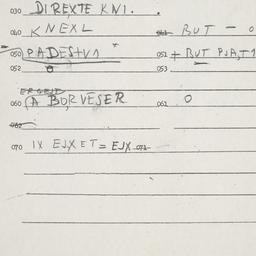 030 DIREXTE KNI.
060 KNEXL
061 BUT - O
050 PADESTV1 *
051 + BUT
052
053
060 A BORVESER
061 O
070 IX EJXET = EJX 071